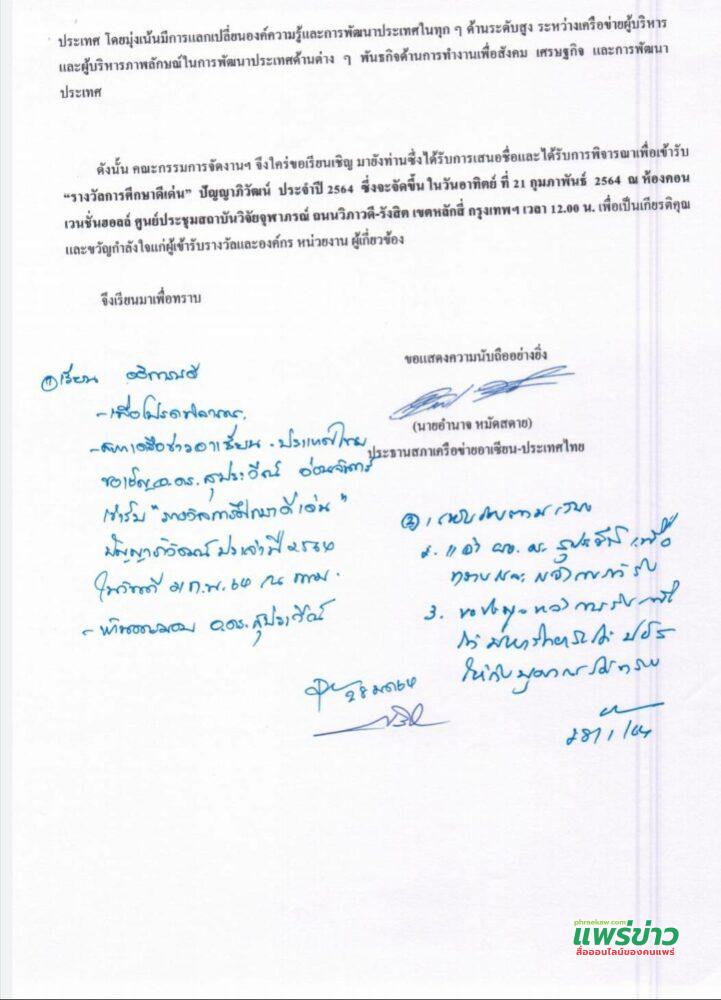 ประเทศ โดยมุ่งเน้นมีการแลกเปลี่ยนองค์ความรู้และการพัฒนาประเทศในทุก ๆ ด้านระดับสูง ระหว่างเครือข่ายผู้บริหาร
และผู้บริหารภาพลักษณ์ในการพัฒนาประเทศด้านต่าง ๆ พันธกิจด้านการทำงานเพื่อสังคม เศรษฐกิจ และการพัฒนา
ประเทศ
ดังนั้น คณะกรรมการจัดงานฯ จึงใคร่ขอเรียนเชิญ มายังท่านซึ่งได้รับการเสนอชื่อและได้รับการพิจารณาเพื่อเข้ารับ
“รางวัลการศึกษาดีเด่น” ปัญญาภิวัฒน์ ประจำปี 2564 ซึ่งจะจัดขึ้น ในวันอาทิตย์ ที่ 21 กุมภาพันธ์ 2564 ณ ห้องคอน
เวนชั่นฮอลล์ ศูนย์ประชุมสถาบันวิจัยจุฬาภรณ์ ถนนวิภาวดี-รังสิต เขตหลักสี่ กรุงเทพฯ เวลา 12.00 น. เพื่อเป็นเกียรติคุณ
และขวัญกำลังใจแก่ผู้เข้ารับรางวัลและองค์กร หน่วยงาน ผู้เกี่ยวข้อง
จึงเรียนมาเพื่อทราบ
ขอแสดงความนับถืออย่างยิ่ง
(นายอำนาจ หมัดสดาย)
ประธานสภาเครือข่ายอาเซียน-ประเทศไทย
① เรียน อธิการบดี
- เพื่อโปรดพิจารณา
- สภาเครือข่ายอาเซียน-ประเทศไทย
ขอเชิญ อ.ดร.สุประวีณ์
เข้ารับ "รางวัลการศึกษาดีเด่น"
ปัญญาภิวัฒน์ ประจำปี 2564
ในวันที่ 21 ก.พ. 64 ณ กทม.
- อ.ดร.สุประวีณ์
28 มค 64
②
2. แจ้ง
3.
28/1/64
phraekaw.com
แพร่ข่าว
สื่อออนไลน์ของคนแพร่